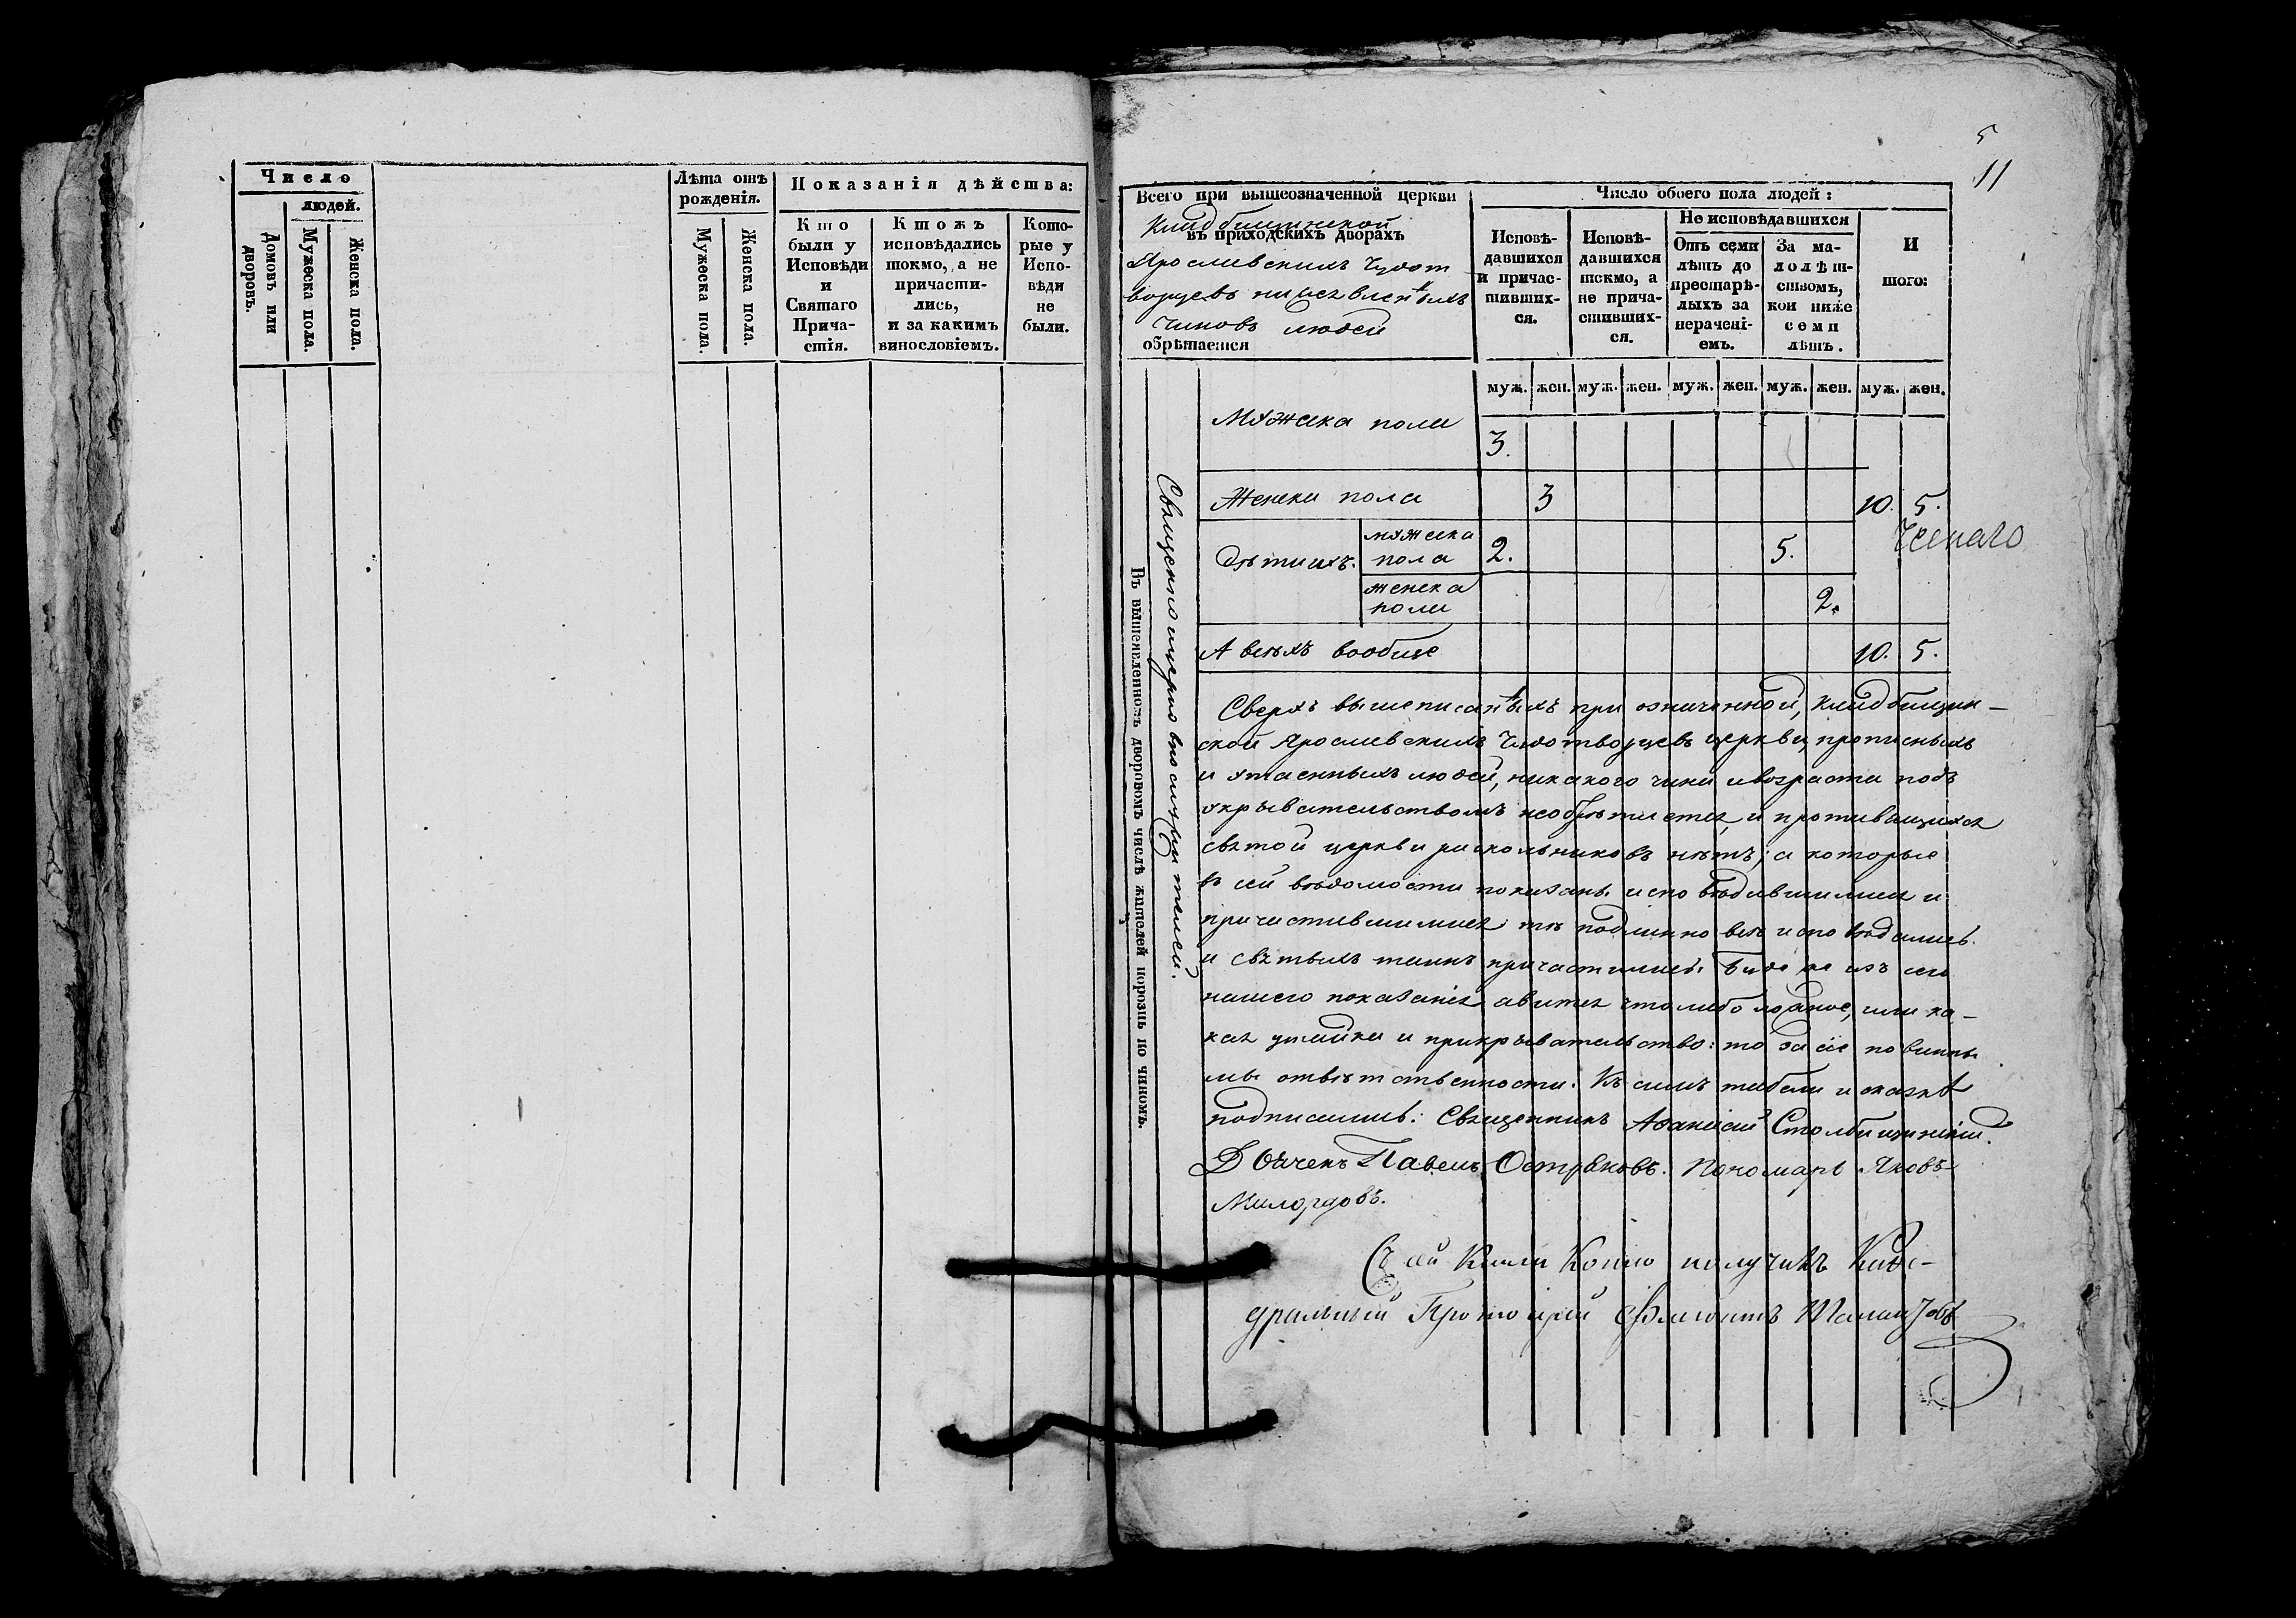 Число
людей.
Домовъ или дворовъ.
Мужеска пола.
Женска пола.
Лѣта отъ рожденія.
Мужеска пола.
Женска пола.
Показанія дѣйства:
Кто были у Исповѣди и Святаго Причастія.
Ктожъ исповѣдались токмо, а не причастились, и за какимъ винословіемъ.
Которые у Исповѣди не были.
5
11
Всего при вышеозначенной церкви
Кладбищинской
въ приходскихъ дворахъ
Ярославскихъ Чудот
ворцевъ
чиновъ людей
обрѣтается
Число обоего пола людей:
Исповѣдавшихся и причастившихся.
Исповѣдавшихся токмо, а не причастившихся.
Не исповѣдавшихся
Отъ семи лѣтъ до престарѣлыхъ за нераченіемъ.
За малолѣтствомъ, кои ниже семи лѣтъ.
И того:
муж. жен. муж. жен. муж. жен. муж. жен. муж. жен.
Мужска пола 3.
Женска пола 3 10. 5.
Дѣтей ихъ. мужска пола 2. 5.
женска пола 2.
А всѣхъ вообще 10. 5.
Въ вышеявленномъ дворовомъ числѣ жителей порознь по чиномъ.
Священно и церковнослужителей.
Сверхъ вышеписанныхъ при означенной, кладбищин-
ской Ярославскихъ Чудотворцевъ церкви, прописныхъ
и утаенныхъ людей, никакого чина и возраста подъ
укрывательствомъ необрѣтается, и противящихся
святой церкви раскольниковъ нѣтъ; а которые
в сей вѣдомости показаны исповѣдавшимися и
причастившимися тѣ подлинно всѣ исповѣдались
и святыхъ таинъ причастились. Буде же изъ сего
нашего показанія явится что либо ложное, или ка-
кая утайка и прикрывательство: то за сіе повинны
мы отвѣтственности. Къ симъ табели и сказкѣ
подписались: Священникъ Афанасій Столбищинскій.
Діаченъ Павелъ Остряковъ. Пономарь Яковъ
Милорадовъ.
Съ сей Книги Копію получилъ Кафе-
дральный Протоіерей